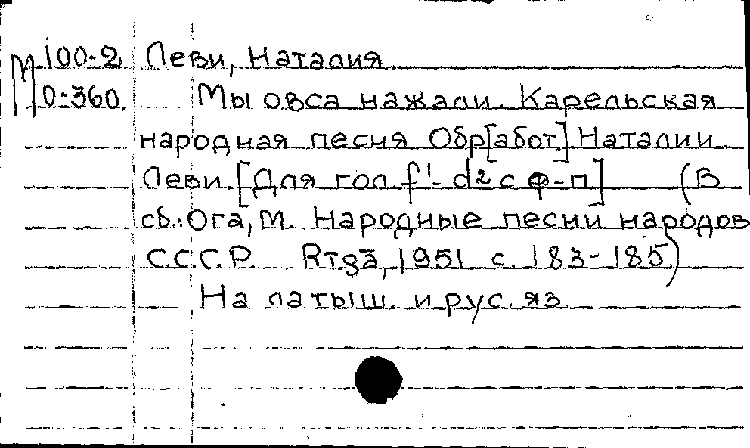 М 100-2 Леви, Наталия
0-360. Мы овса нажали. Карельская
народная песня Обр[абот.] Наталии
Леви. [Для гол f'- d2 с ф-п] (В
сб.: Ога, М. Народные песни народов
С.С.С.Р. Rīgā, 1951 с. 183-185)
На латыш. и рус. яз